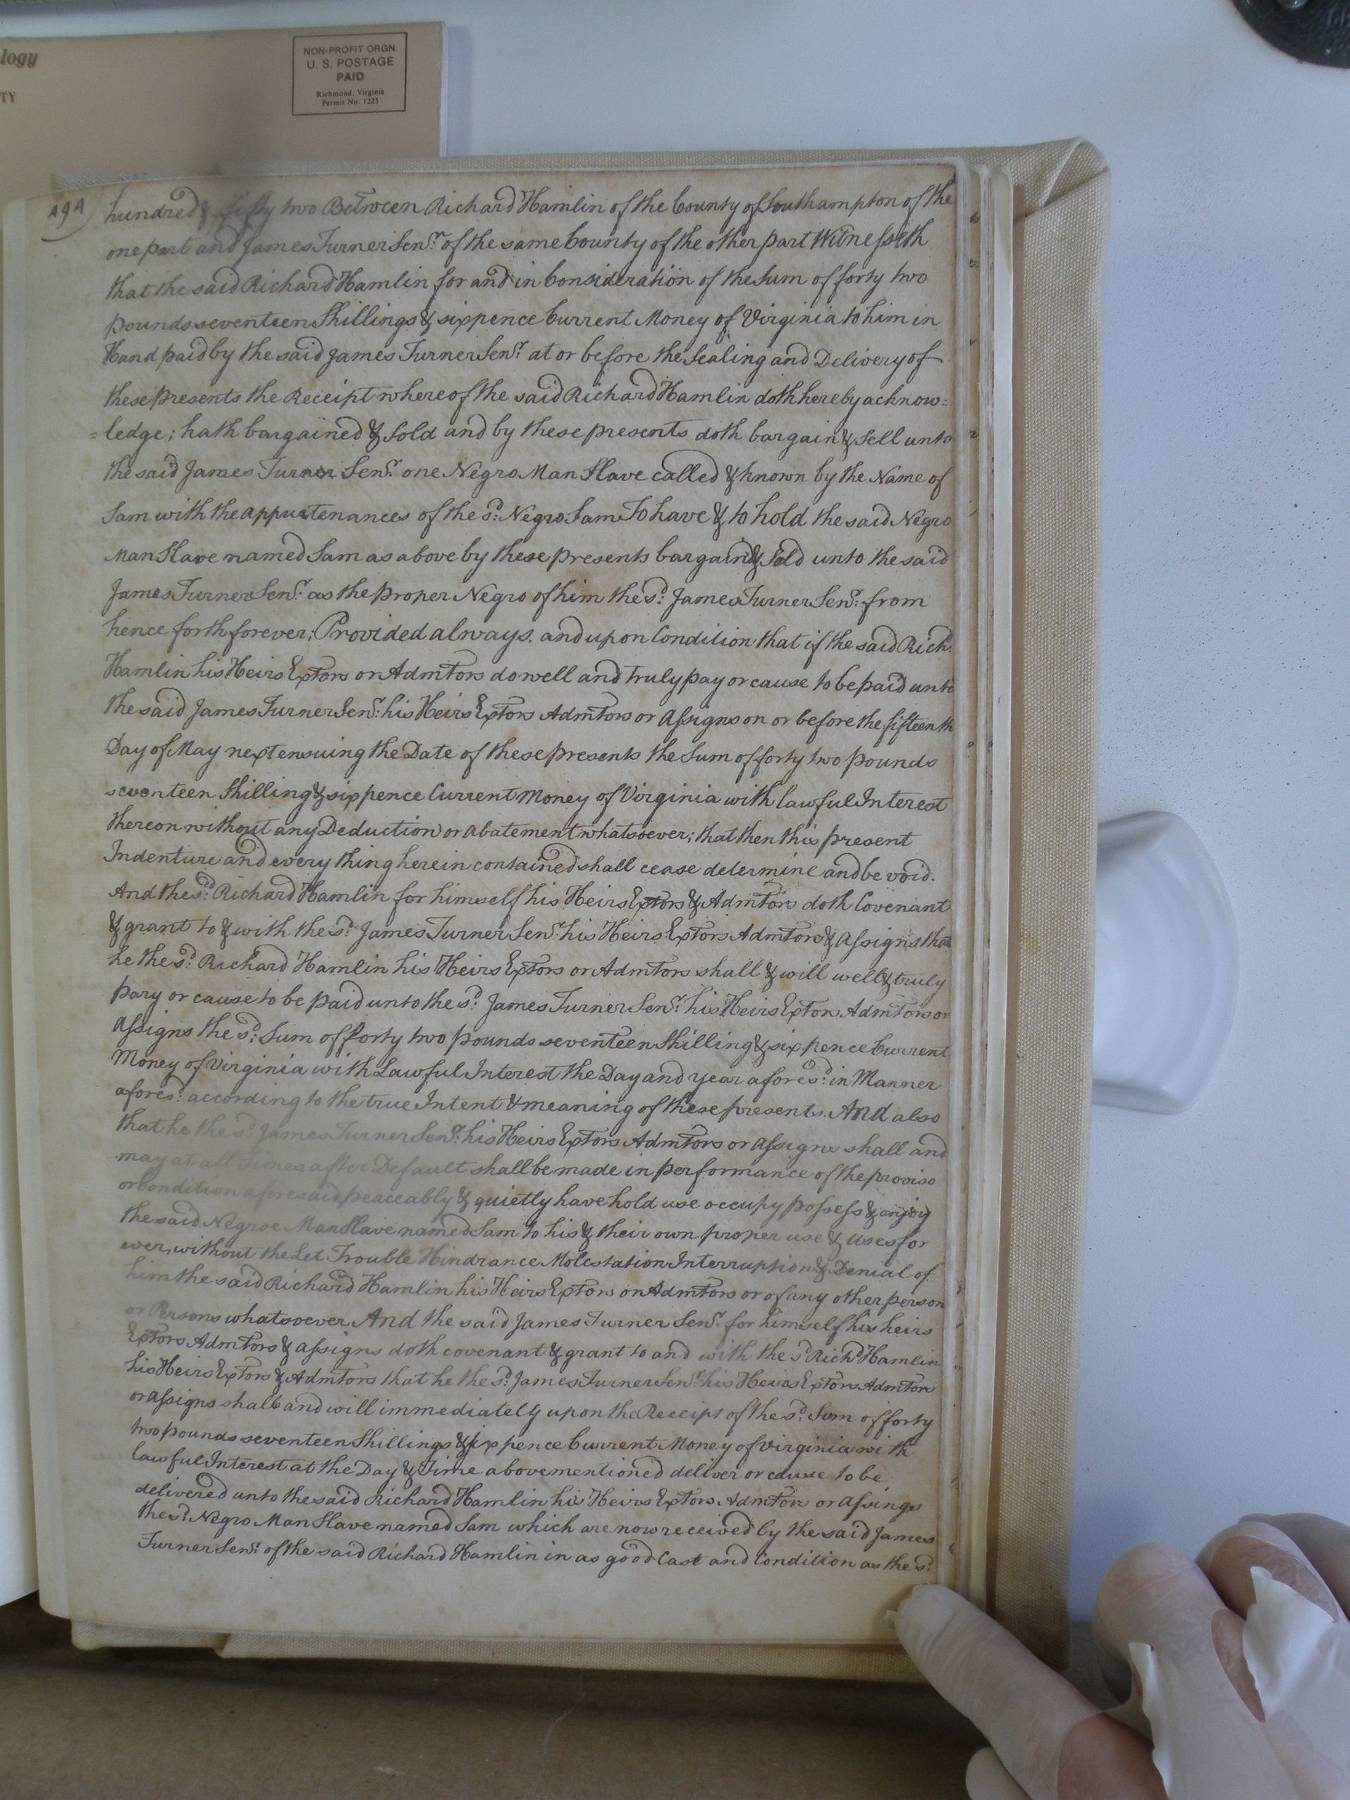 logy
TY
NON-PROFIT ORGN.
U. S. POSTAGE
PAID
Richmond, Virginia
Permit No. 1225
494
hundred & fifty two Between Richard Hamlin of the County of Southampton of the
one part and James Turner Senr. of the same County of the other part Witnesseth
that the said Richard Hamlin for and in Consideration of the Sum of forty two
pounds seventeen Shillings & sixpence Current Money of Virginia to him in
Hand paid by the said James Turner Senr. at or before the Sealing and Delivery of
these presents the Receipt whereof the said Richard Hamlin doth hereby acknow=
=ledge; hath bargained & Sold and by these presents doth bargain & Sell unto
the said James Turner Senr. one Negro Man Slave called & known by the Name of
Sam with the appurtenances of the sd. Negro Sam To have & to hold the said Negro
Man Slave named Sam as above by these presents bargaind & Sold unto the said
James Turner Senr. as the proper Negro of him the sd. James Turner Senr. from
hence forth forever; Provided always, and upon Condition that if the said Richd.
Hamlin his Heirs Exptors or Admtors do well and truly pay or cause to be paid unto
the said James Turner Senr. his Heirs Exptors Admtors or Assigns on or before the fifteenth
Day of May next ensuing the Date of these presents the Sum of forty two pounds
seventeen Shilling & sixpence Current Money of Virginia with lawful Interest
thereon without any Deduction or abatement whatsoever; that then this present
Indenture and every thing herein contained shall cease determine and be void.
And the sd. Richard Hamlin for himself his Heirs Exptors & Admtors doth Covenant
& grant to & with the sd. James Turner Senr. his Heirs Exptors Admtors & Assigns that
he the sd. Richard Hamlin his Heirs Exptors or Admtors shall & will well & truly
pary or cause to be paid unto the sd. James Turner Senr. his Heirs Exptors Admtors or
Assigns the sd. Sum of forty two pounds seventeen Shilling & sixpence Current
Money of Virginia with Lawful Interest the Day and year aforesd. in Manner
aforesd. according to the true Intent & meaning of these presents. And also
that he the sd. James Turner Senr. his Heirs Exptors Admtors or Assigns shall and
may at all Times after Default shall be made in performance of the proviso
or Condition aforesaid, peaceably & quietly have hold use occupy possess & enjoy
the said Negroe Man Slave named Sam to his & their own proper use & uses for
ever, without the Let Trouble Hindrance Molestation Interruption & Denial of
him the said Richard Hamlin his Heirs Exptors or Admtors or of any other person
or Persons whatsoever And the said James Turner Senr. for himself his heirs
Exptors Admtors & Assigns doth covenant & grant to and with the sd. Richd. Hamlin
his Heirs Exptors & Admtors that he the sd. James Turner Senr. his Heirs Exptors Admtors
or Assigns shall and will immediately upon the Receipt of the sd. Sum of forty
two pounds seventeen Shillings & sixpence Current Money of Virginia with
lawful Interest at the Day & Time above mentioned deliver or cause to be
delivered unto the said Richard Hamlin his Heirs Exptors. Admtors or Assings
the sd. Negro Man Slave named Sam which are now received by the said James
Turner Senr. of the said Richard Hamlin in as good Case and Condition as the sd.